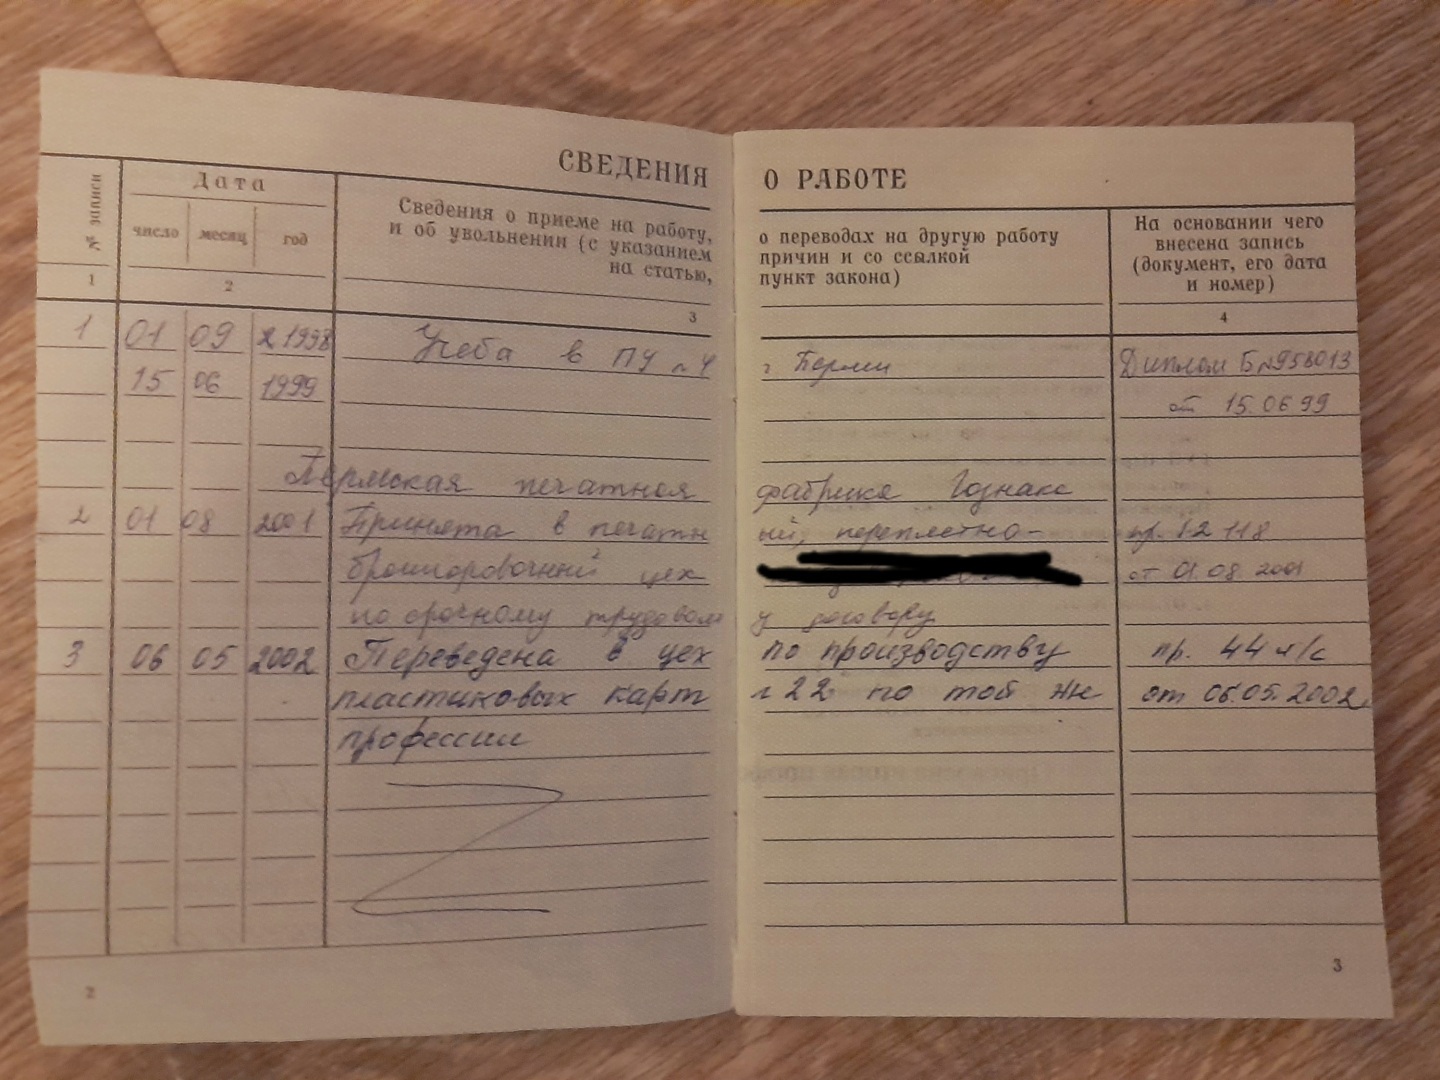 СВЕДЕНИЯ О РАБОТЕ
№ записи
Дата
число месяц год
Сведения о приеме на работу, о переводах на другую работу
и об увольнении (с указанием причин и со ссылкой
на статью, пункт закона)
На основании чего
внесена запись
(документ, его дата
и номер)
1 2 3 4
1 01 09 1998 Учеба в ПУ №4 г Перми Диплом Б №958013
15 06 1999 от 15.06.99
Пермская печатная фабрика Гознака
2 01 08 2001 Принята в печатный, переплетно- пр. 12 118
брошюровочный цех от 01.08.2001
по срочному трудовому договору
3 06 05 2002 Переведена в цех по производству пр. 44 л/с
пластиковых карт №22 по той же от 06.05.2002
профессии
2 3